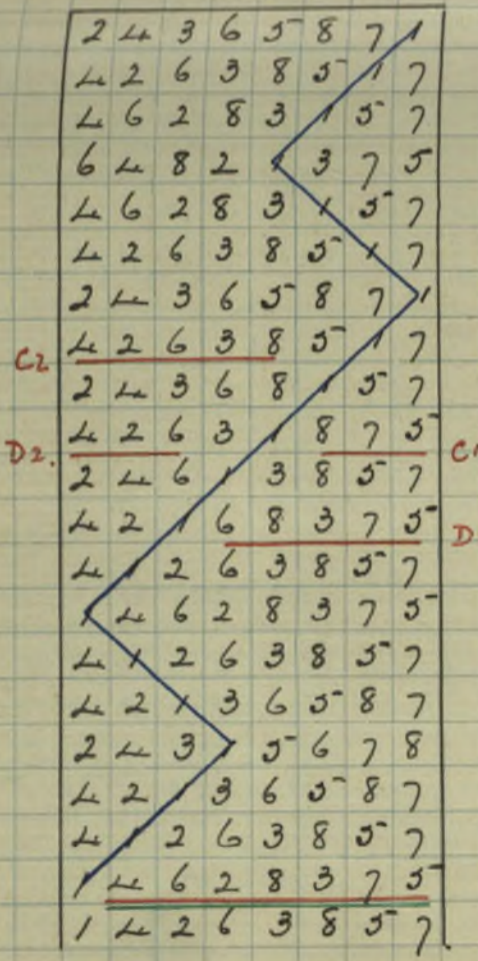 2 4 3 6 5 8 7 1
4 2 6 3 8 5 1 7
4 6 2 8 3 1 5 7
6 4 8 2 1 3 7 5
4 6 2 8 3 1 5 7
4 2 6 3 8 5 1 7
2 4 3 6 5 8 7 1
C2 4 2 6 3 8 5 1 7
2 4 3 6 8 1 5 7
D2. 4 2 6 3 1 8 7 5 C1
2 4 6 1 3 8 5 7
4 2 1 6 8 3 7 5 D
4 1 2 6 3 8 5 7
1 4 6 2 8 3 7 5
4 1 2 6 3 8 5 7
4 2 1 3 6 5 8 7
2 4 3 1 5 6 7 8
4 2 1 3 6 5 8 7
4 1 2 6 3 8 5 7
1 4 6 2 8 3 7 5
1 4 2 6 3 8 5 7